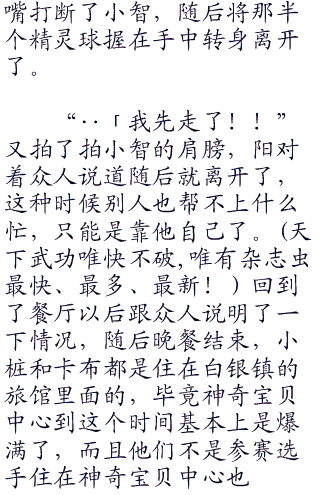 嘴打断了小智，随后将那半
个精灵球握在手中转身离开
了。
“··「我先走了！！”
又拍了拍小智的肩膀，阳对
着众人说道随后就离开了，
这种时候别人也帮不上什么
忙，只能是靠他自己了。(天
下武功唯快不破,唯有杂志虫
最快、最多、最新！)回到
了餐厅以后跟众人说明了一
下情况，随后晚餐结束，小
桩和卡布都是住在白银镇的
旅馆里面的，毕竟神奇宝贝
中心到这个时间基本上是爆
满了，而且他们不是参赛选
手住在神奇宝贝中心也